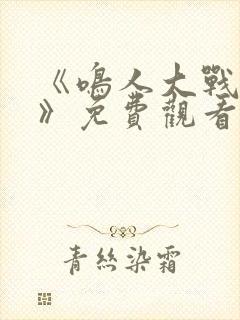 《鳴人大戰
》免費觀看
青絲染霜